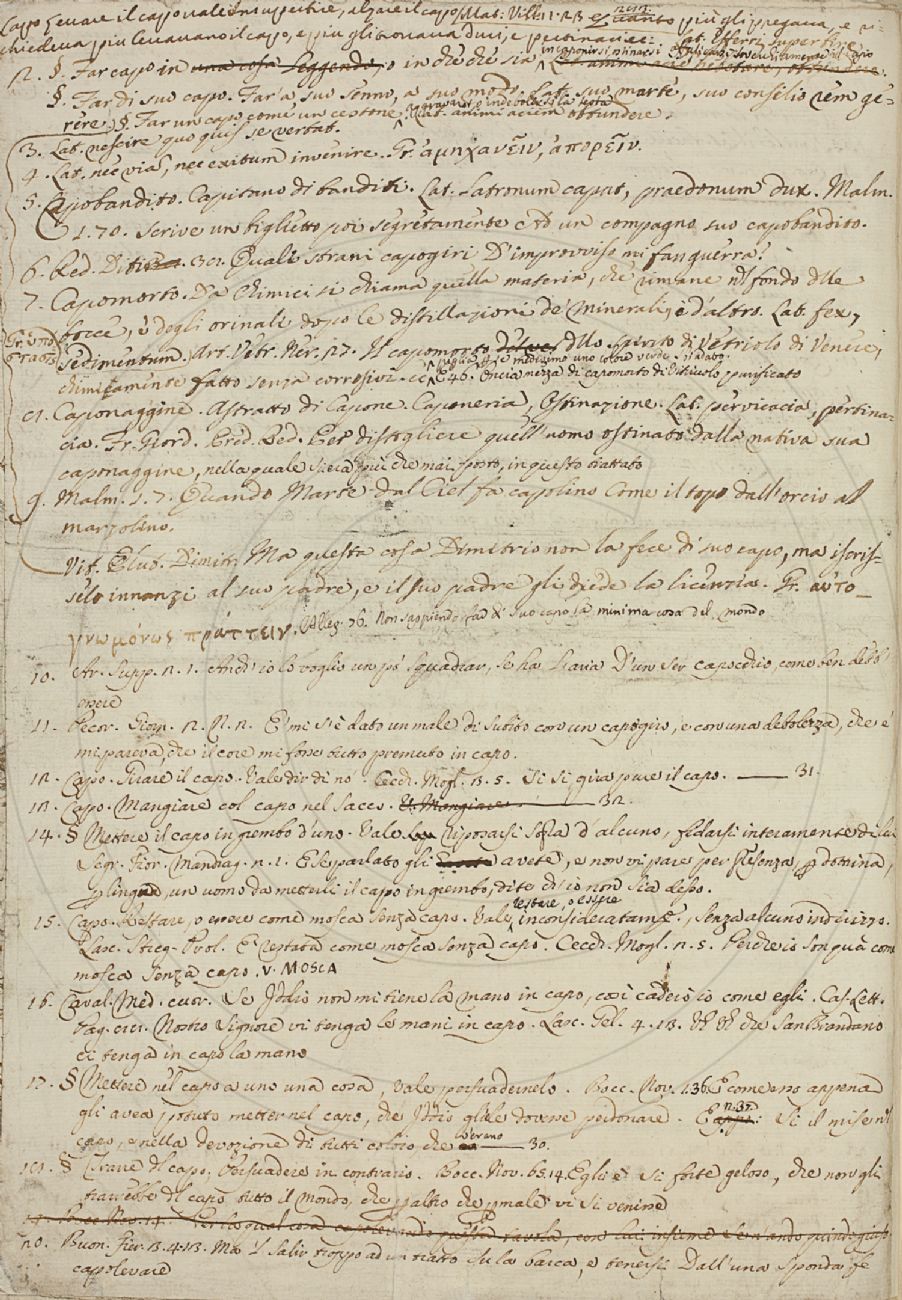 Capo Levare il capo vale Insuperbire, alzare il capo Mat. Vill. 11. 23 e quanto più gli pregava, e ri-
chiedeva più levavano il capo, e più gli trovava duri, e pertinaci. Lat. Efferri, superbire
2. §. Far capo in una cosa leggendo, o in che che sia
§. Far di suo capo. Far a suo senno, a suo modo. Lat. suo marte, suo consilio rem ge-
rere. §. Far un capo come un cestone, aggravarsi, e indebolirsi la testa Lat. animi aciem obtundere.
3. Lat. nescire quo quis se vertat.
4. Lat. nec viã, nec exitum invenire. Gr. ἀμηχανεῖν, ἀπορεῖν.
5. Capobandito. Capitano di banditi. Lat. Latronum caput, praedonum dux. Malm.
1. 70. Scrive un biglietto poi segretamente Ad un compagno suo capobandito.
6. Red. Ditir. 32. Quali strani capogiri D'improvviso mi fan guerra?
7. Capomorto. Da Chimici si chiama quella materia, che rimane nel fondo delle
bocce, o degli orinali dopo le distillazioni de' minerali, e d'altro. Lat. fex,
Gr. ὑπό
στασις
Sedimentum. Art. Vetr. Ner. 27. Il capomorto dello spirito di Vetriolo di Venere,
chimicamente fatto senza corrosivi E 46. Oncia mezza di capomorto di Vitriolo purificato
8. Caponaggine. Astratto di Capone. Caponeria, Ostinazione. Lat. pervicacia, pertina-
cia. Fr. Giord. Pred. Red. Per distogliere quell'uomo ostinato dalla nativa sua
caponaggine, nella quale si era più che mai posto, in questo trattato
9. Malm. 1. 7. Quando Marte dal Ciel fa capolino Come il topo dall'orcio al
marzolino.
Vit. Plut. Dimitr. Ma questa cosa Dimitrio non la fece di suo capo, ma iscris-
selo innanzi al suo padre, e il suo padre gli diede la licenzia. Gr. αὐτο_
γνωμόνως πράττειν. Alleg. 76. Non sappiendo far di suo capo la minima cosa del mondo
10. Ar. Supp. 2. 1. Anch'io lo voglio un pò squadrar, se ha l'aria D'un ser capocchio, come ben debb'
essere
11. Pecor. Giorn. 2. N. 2. E' mi s'è dato un male di subito con un capogiro, e con una debolezza, che e'
mi pareva, che il core mi fosse tutto premuto in capo.
12. Capo. Girare il capo. Vale dir di no. Cecch. Mogl. 3. 5. Si si, gira pure il capo. —— 31.
13. Capo. Mangiare col capo nel sacco. —— 32.
14. § Mettere il capo in grembo d'uno. Vale riposarsi sopra d'alcuno, fidarsi interamente di lui
Segr. Fior. Mandrag. 2. 1. E se parlato gli avete, e non vi pare per presenza, per dottrina,
per lingua, un uomo da mettergli il capo in grembo, dite ch'io non sia desso.
15. Capo. Restare, o essere come mosca senza capo. Vale restare, o essere inconsideratamte, senza alcuno indirizzo.
Lasc. Streg. Prol. È restata come mosca senza capo. Cecch. Mogl. 2. 5. Perche io son quà come
mosca senza capo. V. MOSCA
16. Caval. Med. cuor. Se Iddio non mi tiene la mano in capo, così caderò io come egli. Cas. Lett.
Pag. 88. Nostro Signore vi tenga le mani in capo. Lasc. Gel. 4. 13. Oh oh che San Brandano
ci tenga in capo la mano
17. § Mettere nel capo a uno una cosa, Vale persuadernelo. Bocc. Nov. 1. 36. E come esso appena
gli avea potuto metter nel capo, che Iddio gliele dovesse perdonare. E n. 37. Si il mise nel
capo, e nella devozione di tutti coloro, che v'erano —— 30.
18. § Trarre del capo, Persuadere in contrario. Bocc. Nov. 65. 14. Egli è si forte geloso, che non gli
trarrebbe del capo tutto il mondo, che per altro che per male vi si venisse
20. Buon. Fier. 3. 4. 13. Ma 'l salir troppo ad un tratto su la barca, e tenersi Dall'una sponda fe
capolevare